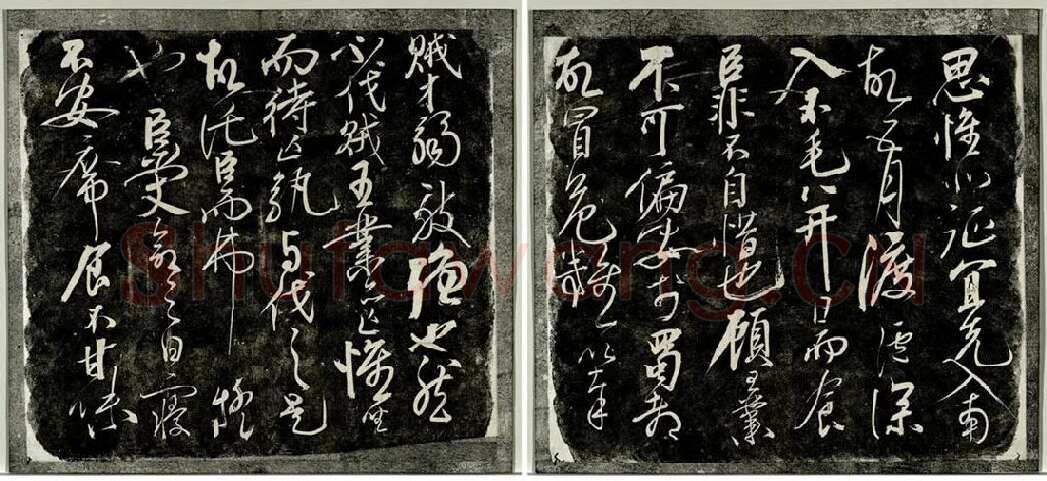 賊才弱敵強也然
不伐賊王業亦亡惟坐
而待亡孰與伐之是
故託臣而弗疑
也臣受命之日寢
不安席食不甘味
思惟北征宜先入南
故五月渡瀘深
入不毛并日而食
臣非不自惜也顧王業
不可偏安於蜀都
故冒危難以奉
Shufawang.cn